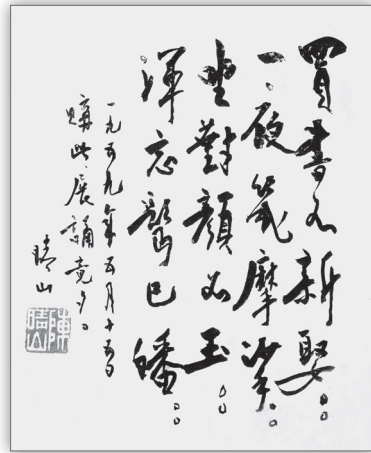 買書如新娶。
一摩挲。
坐對顏如玉。
渾忘鬢已皤。
一九五九年五月十五日
購此展誦竟夕。
晴山
陳晴山